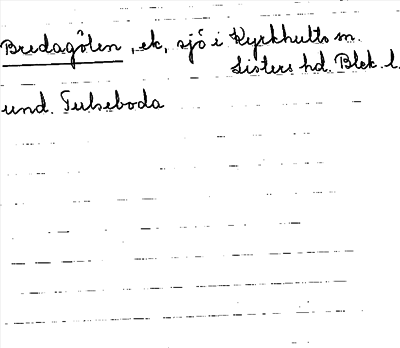 Bredagölen, ek, sjö i Kyrkhults sn.
Listers hd. Blek. l.
und. Tulseboda